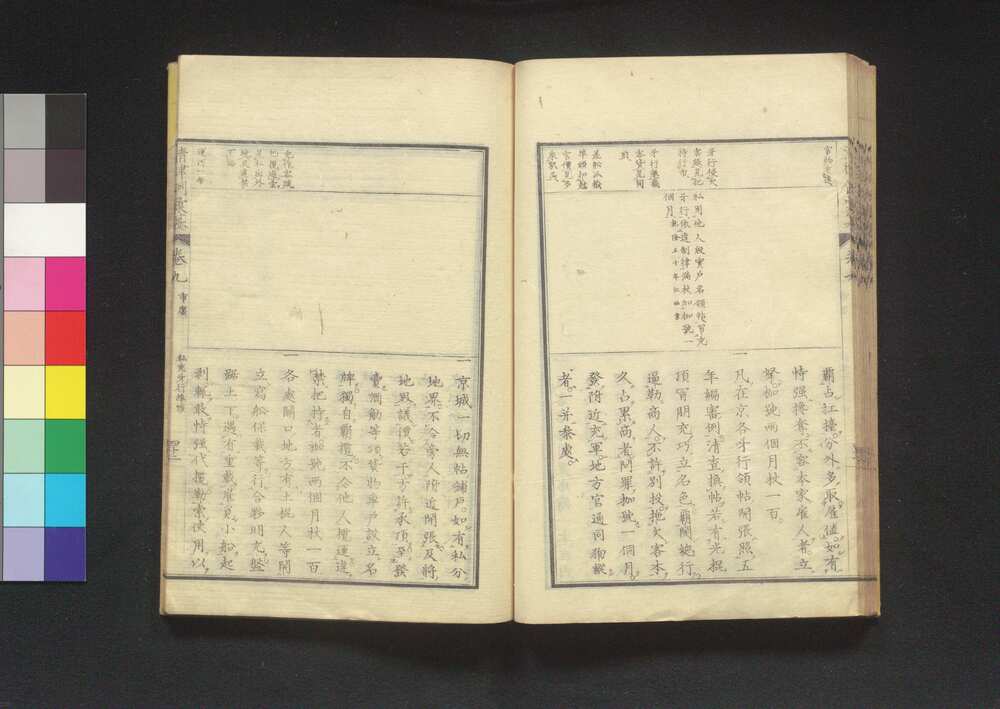 霸占扛擡分外多取雇值如有
恃强攙奪不容本家雇人者立
拏枷號兩個月杖一百
一凡在京各牙行領帖開張照五
年編審例清查換帖若有光棍
頂冒朋充巧立名色霸開總行
逼勒商人不許別投拖欠客本
久占累商者問罪枷號一個月
發附近充軍地方官通同徇縱
者一并叅處
私用他人殷實戶名領帖冒充
牙行依違制律滿杖加枷號一
個月
一京城一切無帖鋪戶如有私分
地界不令旁人附近開張及將
地界議價若干方許承頂至發
賣酒麯等項貨物車戶設立名
牌獨自霸攬不令他人攬運違
禁把持者枷號兩個月杖一百
一各處關口地方有土棍人等開
立寫船保載等行合夥朋充盤
踞上下遇有重載雇覓小船起
剝輒敢恃强代攬勒索使用以
清律例彙
卷九
市廛
私充牙行埠頭